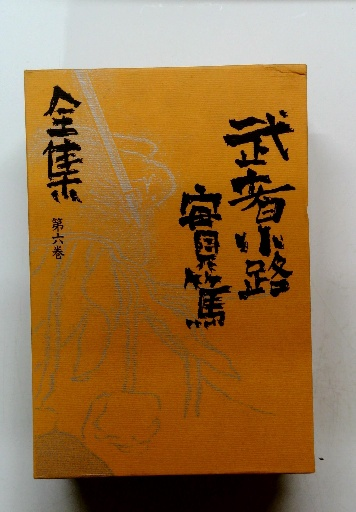 武者小路
實篤
全集
第六巻